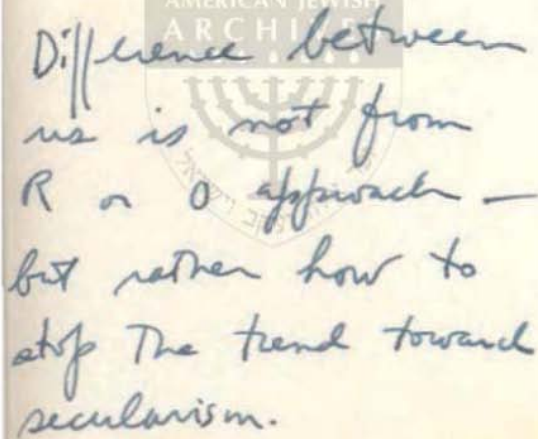 AMERICAN JEWISH
ARCHIVES
Difference between
us is not from
R or O approach —
but rather how to
stop The trend toward
secularism.